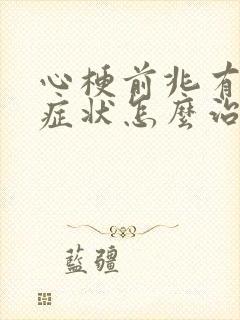 心梗前兆有
症状怎麼治
藍疆